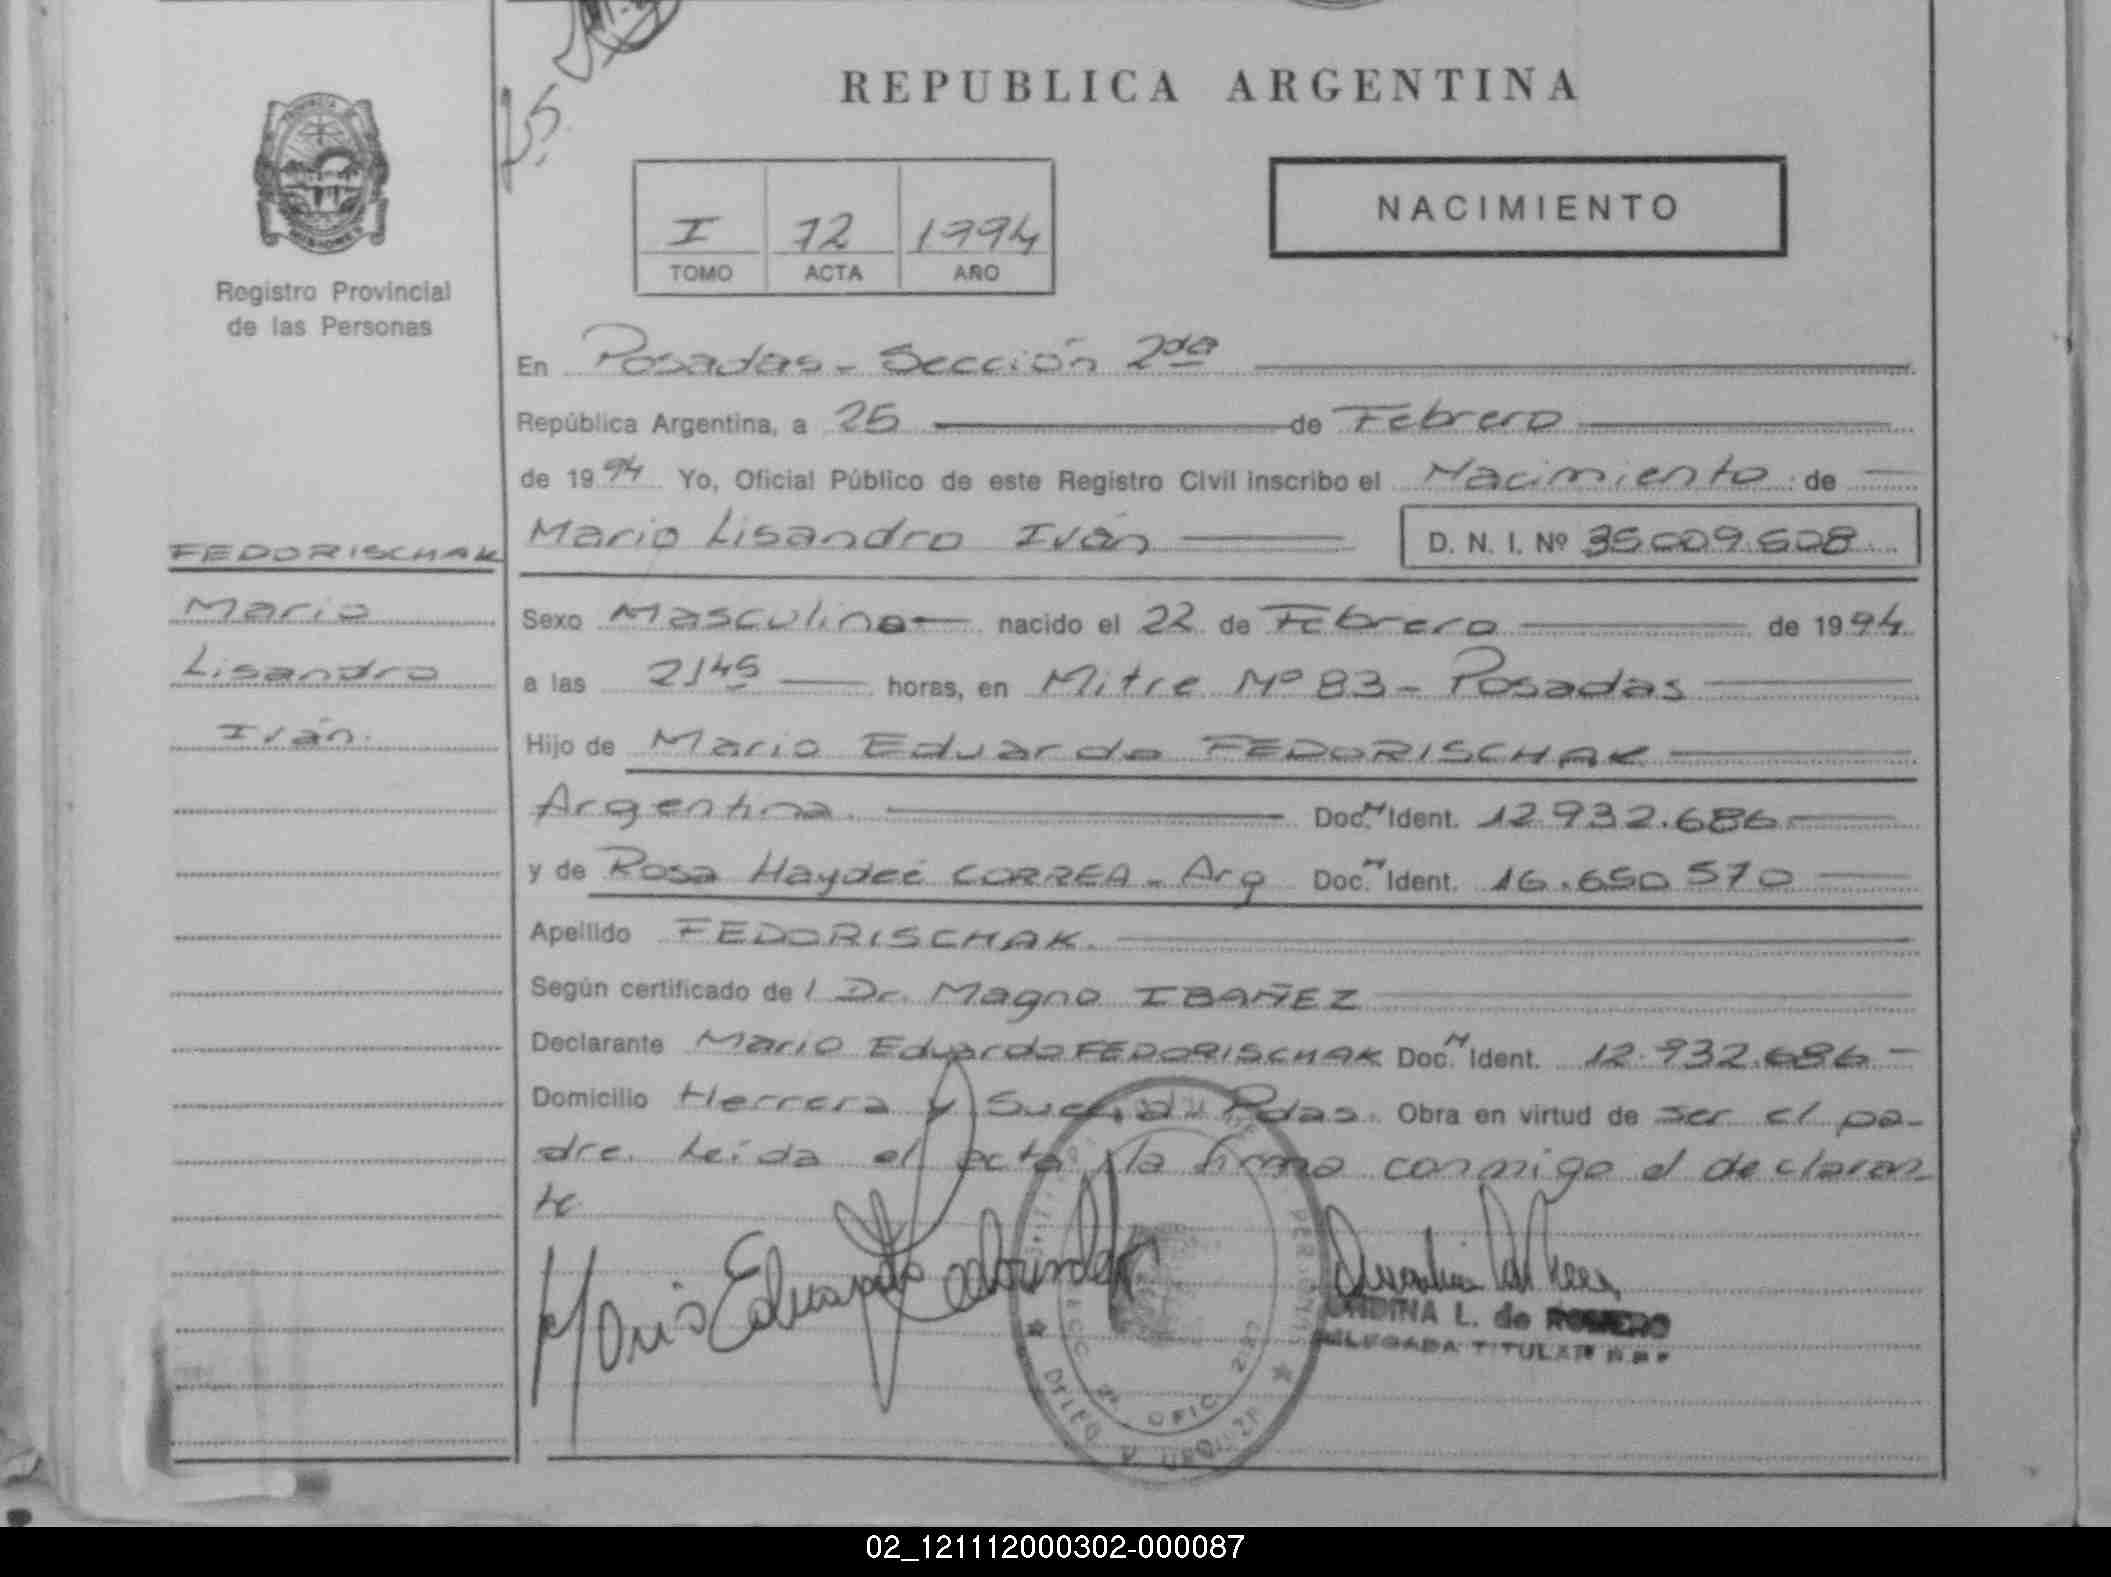 REPUBLICA ARGENTINA
25
I 72 1994
TOMO ACTA AÑO
NACIMIENTO
MISIONES
Registro Provincial
de las Personas
En Posadas - Sección 2da
República Argentina, a 25 de Febrero
de 1994 Yo, Oficial Público de este Registro Civil inscribo el Nacimiento de
Mario Lisandro Iván D. N. I. Nº 35009.608
FEDORISCHAK
Mario
Lisandro
Iván.
Sexo Masculino nacido el 22 de Febrero de 1994
a las 21 45 horas, en Mitre Nº 83 - Posadas
Hijo de Mario Eduardo FEDORISCHAK
Argentina. Doc. N Ident. 12.932.686
y de Rosa Haydeé CORREA - Arg Doc. N Ident. 16.650.570
Apellido FEDORISCHAK.
Según certificado del Dr. Magno IBAÑEZ
Declarante Mario Eduardo FEDORISCHAK Doc. N Ident. 12.932.686 -
Domicilio Herrera y Pdas. Obra en virtud de ser el pa-
dre. Leída el acta la firma conmigo el declaran
te
Mario Eduardo
UNDINA L. de ROMERO
DELEGADA TITULAR R.P.P
OFIC
02_121112000302-000087